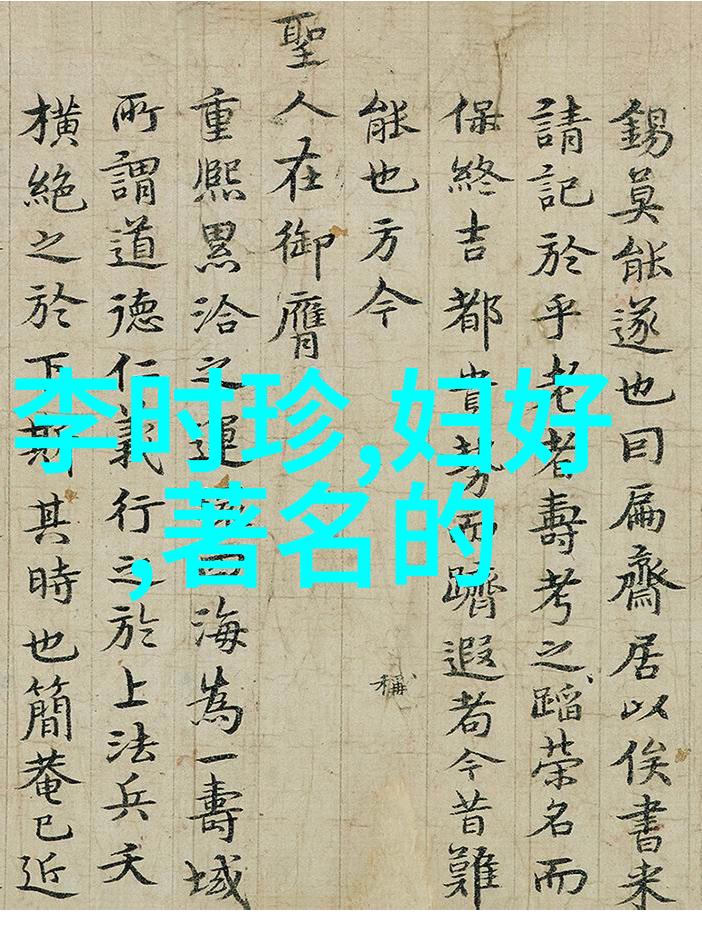 錫莫能遂也曰扁齋居以俟書来
請記於乎老者壽考之蹈榮名而
保終吉都貴勢而躋遐者今昔難
稱
能也方今
聖人在御膺
重熙累洽之運海為一壽域
所謂道德仁義行之於上法兵夭
橫絕之於下斯其時也簡菴已近
李时珍,妇好
,著名的